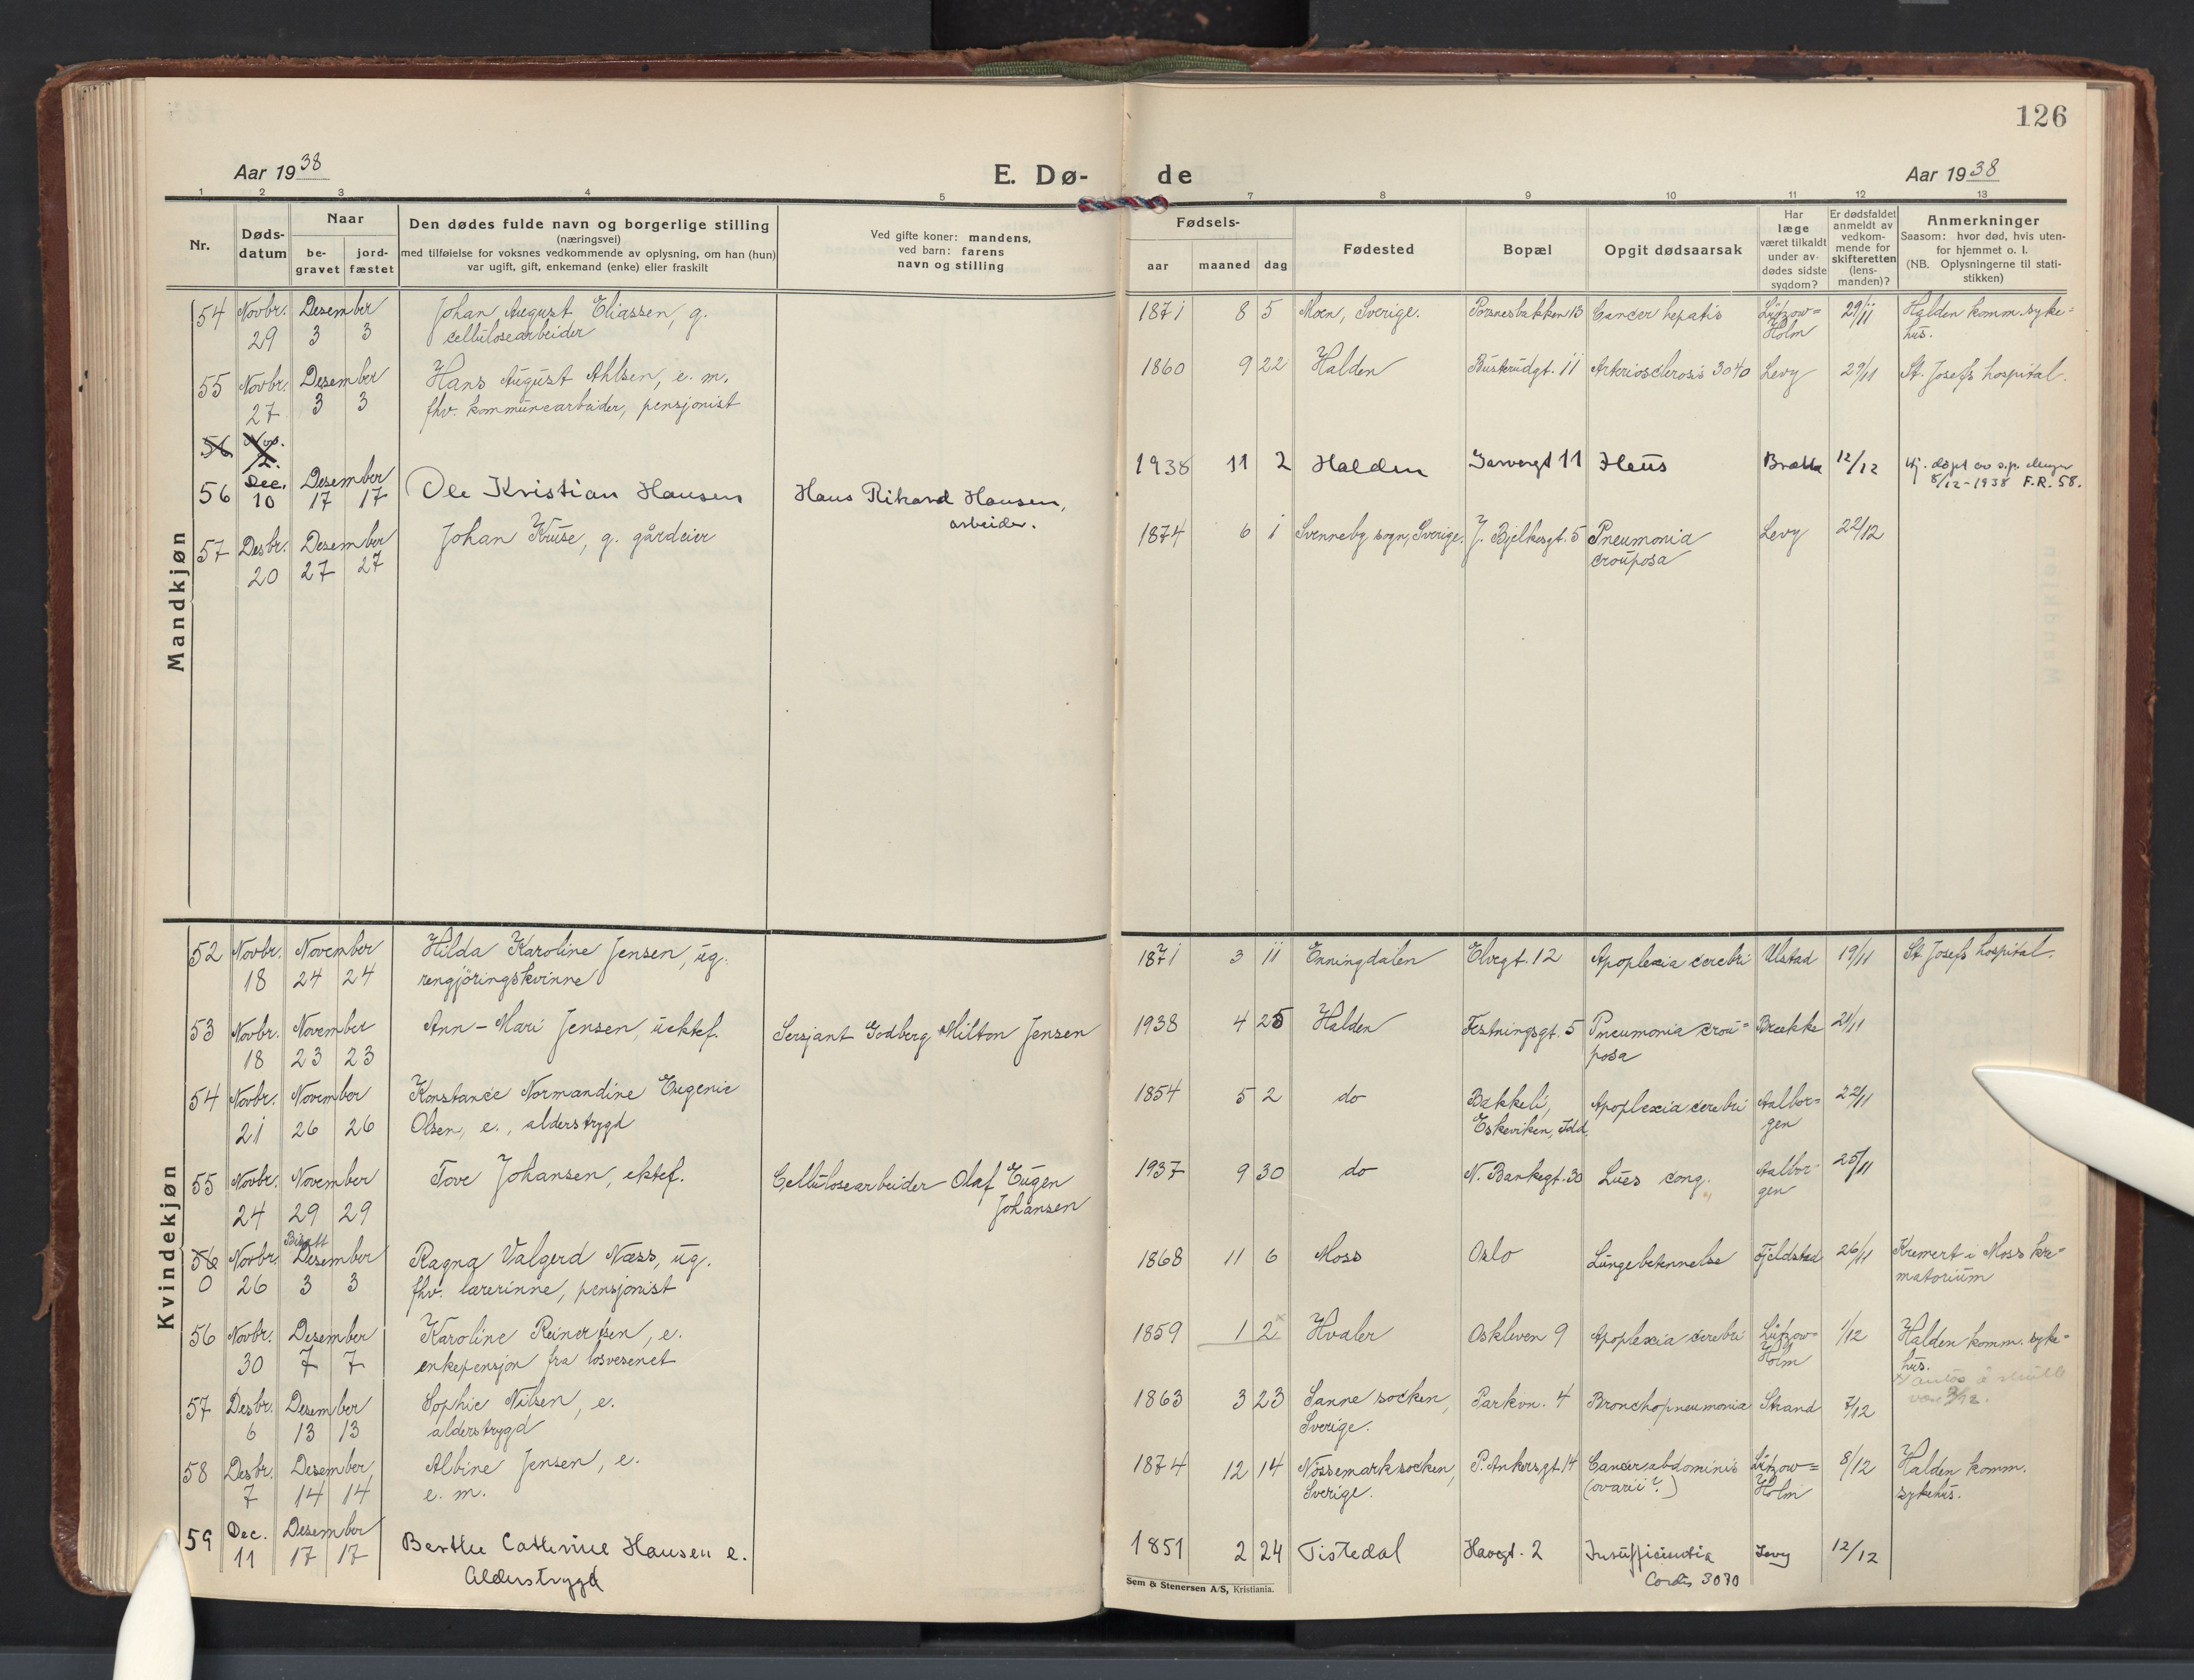 126
Aar 1938
E. Dø-
de
Aar 1938
1 2 3 4 5 7 8 9 10 11 12 13
Nr.
Døds-
datum
Naar
be-
gravet
jord-
fæstet
Den dødes fulde navn og borgerlige stilling
(næringsvei)
med tilføielse for voksnes vedkommende av oplysning, om han (hun)
var ugift, gift, enkemand (enke) eller fraskilt
Ved gifte koner: mandens,
ved barn: farens
navn og stilling
Fødsels-
aar maaned dag
Fødested
Bopæl
Opgit dødsaarsak
Har
læge
været tilkaldt
under av-
dødes sidste
sygdom?
Er dødsfaldet
anmeldt av
vedkom-
mende for
skifteretten
(lens-
manden)?
Anmerkninger
Saasom: hvor død, hvis uten-
for hjemmet o. l.
(NB. Oplysningerne til stati-
stikken)
Mandkjøn
54 Novbr. Desember Johan August Eliassen, g. 1871 8 5 Moen, Sverige. Porsnesbakken 13 Cancer hepatis Lützow= 29/11 Halden komm. syke=
29 3 3 cellulosearbeider Holm hus.
55 Novbr. Desember Hans August Ahlsen, e. m. 1860 9 22 Halden Busterudgt. 11 Arteriosclerosis 3040 Levy 29/11 St. Josefs hospital.
27 3 3 fhv. kommunearbeider, pensjonist
56 Nov.
2.
56 Dec. Desember Ole Kristian Hansen Hans Rikard Hansen, 1938 11 2 Halden 11 Brække 12/12 Hj. døpt
10 17 17 arbeider. 8/12-1938 F.R. 58.
57 Desbr. Desember Johan Kruse, g. gårdeier 1874 6 1 Svenneby sogn, Sverige. J. Bjelkesgt. 5 Pneumonia Levy 22/12
20 27 27 crouposa
Kvindekjøn
52 Novbr. November Hilda Karoline Jensen, ug. 1871 3 11 Enningdalen Elvegt. 12 Apoplexia cerebri Ulstad 19/11 St. Josefs hospital.
18 24 24 rengjöringskvinne
53 Novbr. November Ann-Mari Jensen, uektef. Sersjant Godberg Milton Jensen 1938 4 25 Halden Festningsgt. 5 Pneumonia crou= Brekke 21/11
18 23 23 posa
54 Novbr. November Konstance Normandine Eugenie 1854 5 2 do Bakkeli, Apoplexia cerebri Aalbor- 22/11
21 26 26 Olsen, e., alderstrygd Eskeviken, Idd. gen
55 Novbr. November Tove Johansen, ektef. Cellulosearbeider Olaf Eugen 1937 9 30 do N. Bankegt. 30 Lues cong. Aalbor- 25/11
24 29 29 Johansen gen
Bisatt
56 Novbr. Desember Ragna Valgerd Næss, ug. 1868 11 6 Moss Oslo Lungebetennelse Fjeldstad 26/11 Kremert i Moss kre=
0 26 3 3 fhv. lærerinne, pensjonist matorium
56 Novbr. Desember Karoline Reinertsen, e. 1859 1 2 x Hvaler Oskleven 9 Apoplexia cerebri Lützow= 1/12 Halden komm. syke=
30 7 7 enkepensjon fra losvesenet Holm hus.
57 Desbr. Desember Sophie Nilsen, e. 1863 3 23 Sanne socken, Parkvn. 4 Bronchopneumonia Strand 7/12
6 13 13 alderstrygd Sverige.
58 Desbr. Desember Albine Jensen, e. 1874 12 14 Nössemark socken, P. Ankersgt. 14 Cancer abdominis Lützow= 8/12 Halden komm.
7 14 14 e. m. Sverige. (ovarii?) Holm sykehus.
59 Dec. Desember Berthe Cathrine Hansen e. 1851 2 24 Tistedal Havegt. 2 Insufficientia Levy 12/12
11 17 17 Alderstrygd Cordis 3070
Sem & Stenersen A/S, Kristiania.